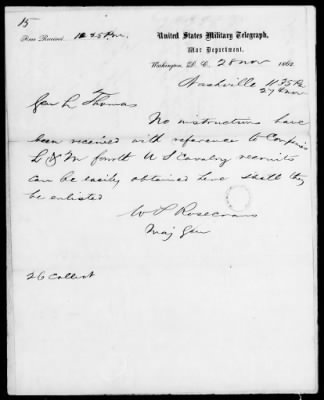 15
Time Received, 12.25 Pm.
United States Military Telegraph,
War Department.
Washington, D. C., 28 nov 1862
Nashville 11.35 Pm
27 nov
Gen L Thomas
No instructions have
been received with reference to Companies
L & M fourth U S Cavalry recruits
can be easily obtained here shall they
be enlisted
W S Rosecrans
Maj Gen
26 Collect